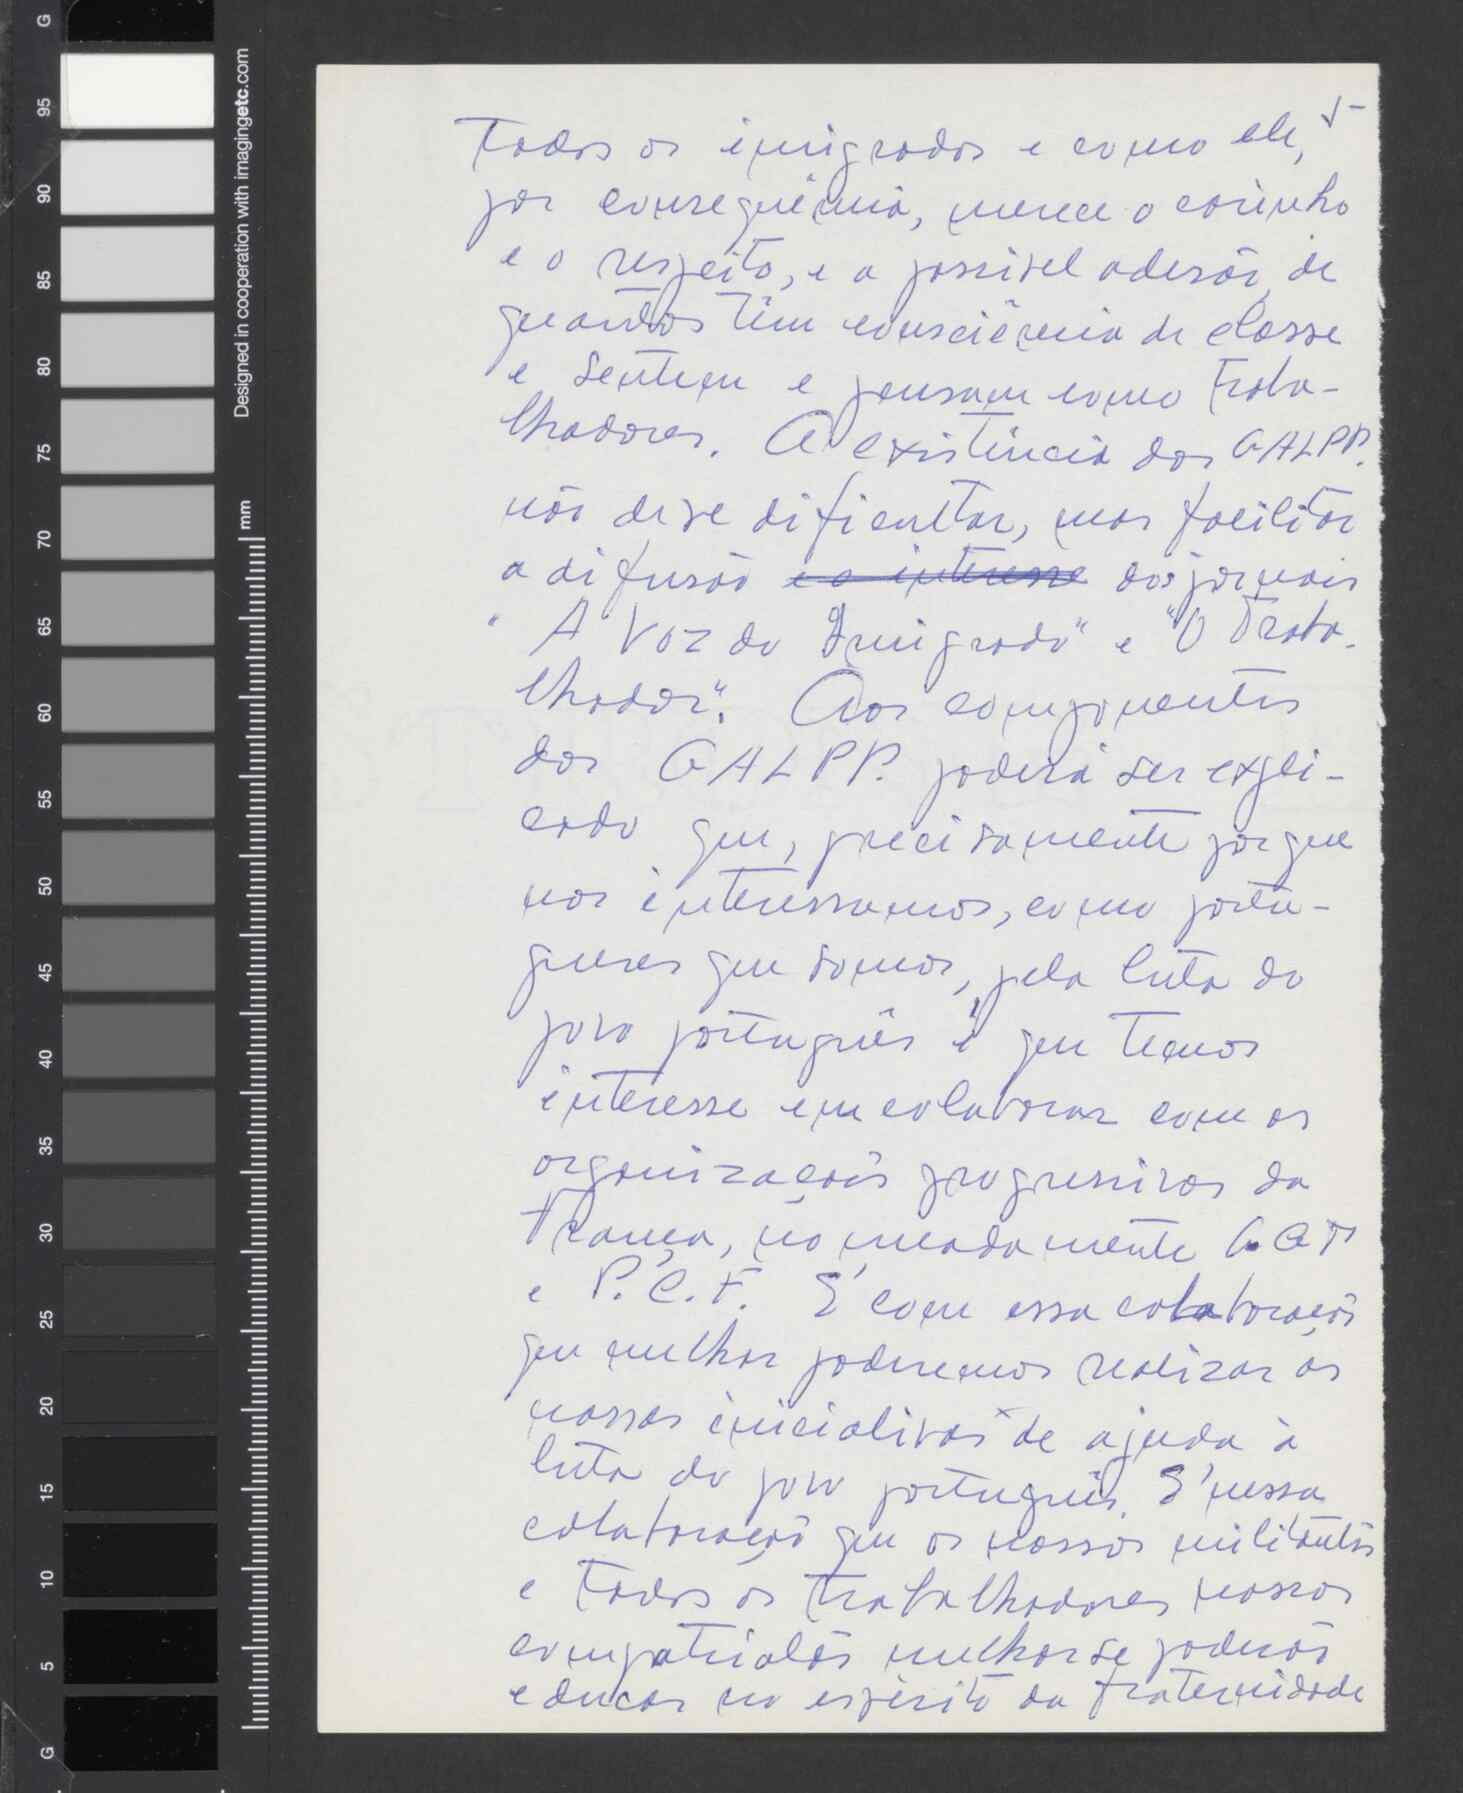 5
Todos os imigrados e como ele,
por consequência, merece o carinho
e o respeito, e a possível adesão, de
quantos têm consciência de classe
e sentem e pensam como traba-
lhadores. A existência dos GALPP.
não deve dificultar, mas facilitar
a difusão e o interesse dos jornais
"A Voz do Imigrado" e "O Traba-
lhador". Aos componentes
dos GALPP. poderá ser expli-
cado que, precisamente porque
nos interessamos, como portu-
gueses que somos, pela luta do
povo português é que temos
interesse em colaborar com as
organizações progressivas da
França, nomeadamente C.G.T
e P.C.F. É com essa colaboração
que melhor poderemos realizar as
nossas iniciativas de ajuda à
luta do povo português. É nessa
colaboração que os nossos militantes
e todos os trabalhadores nossos
compatriotas melhor se poderão
educar no espírito da fraternidade
Designed in cooperation with imagingetc.com
mm
G
95
90
85
80
75
70
65
60
55
50
45
40
35
30
25
20
15
10
5
G